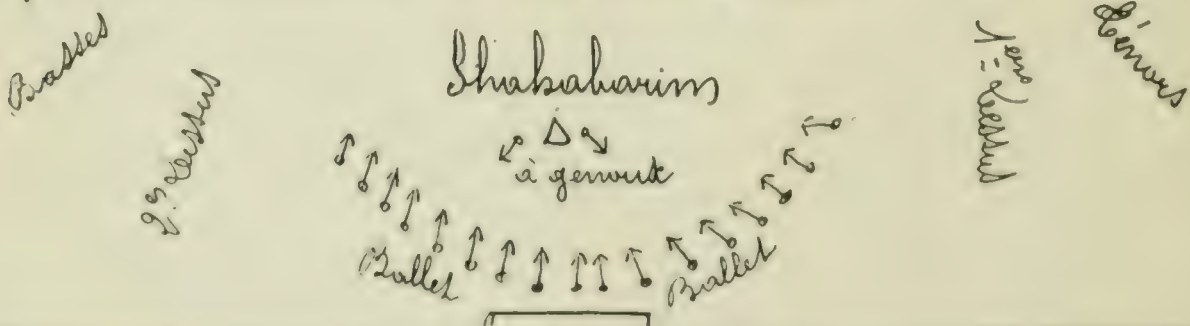 Basses
2es Dessus
Shahabarim
à genoux
Ballet
Ballet
1ers Dessus
Ténors